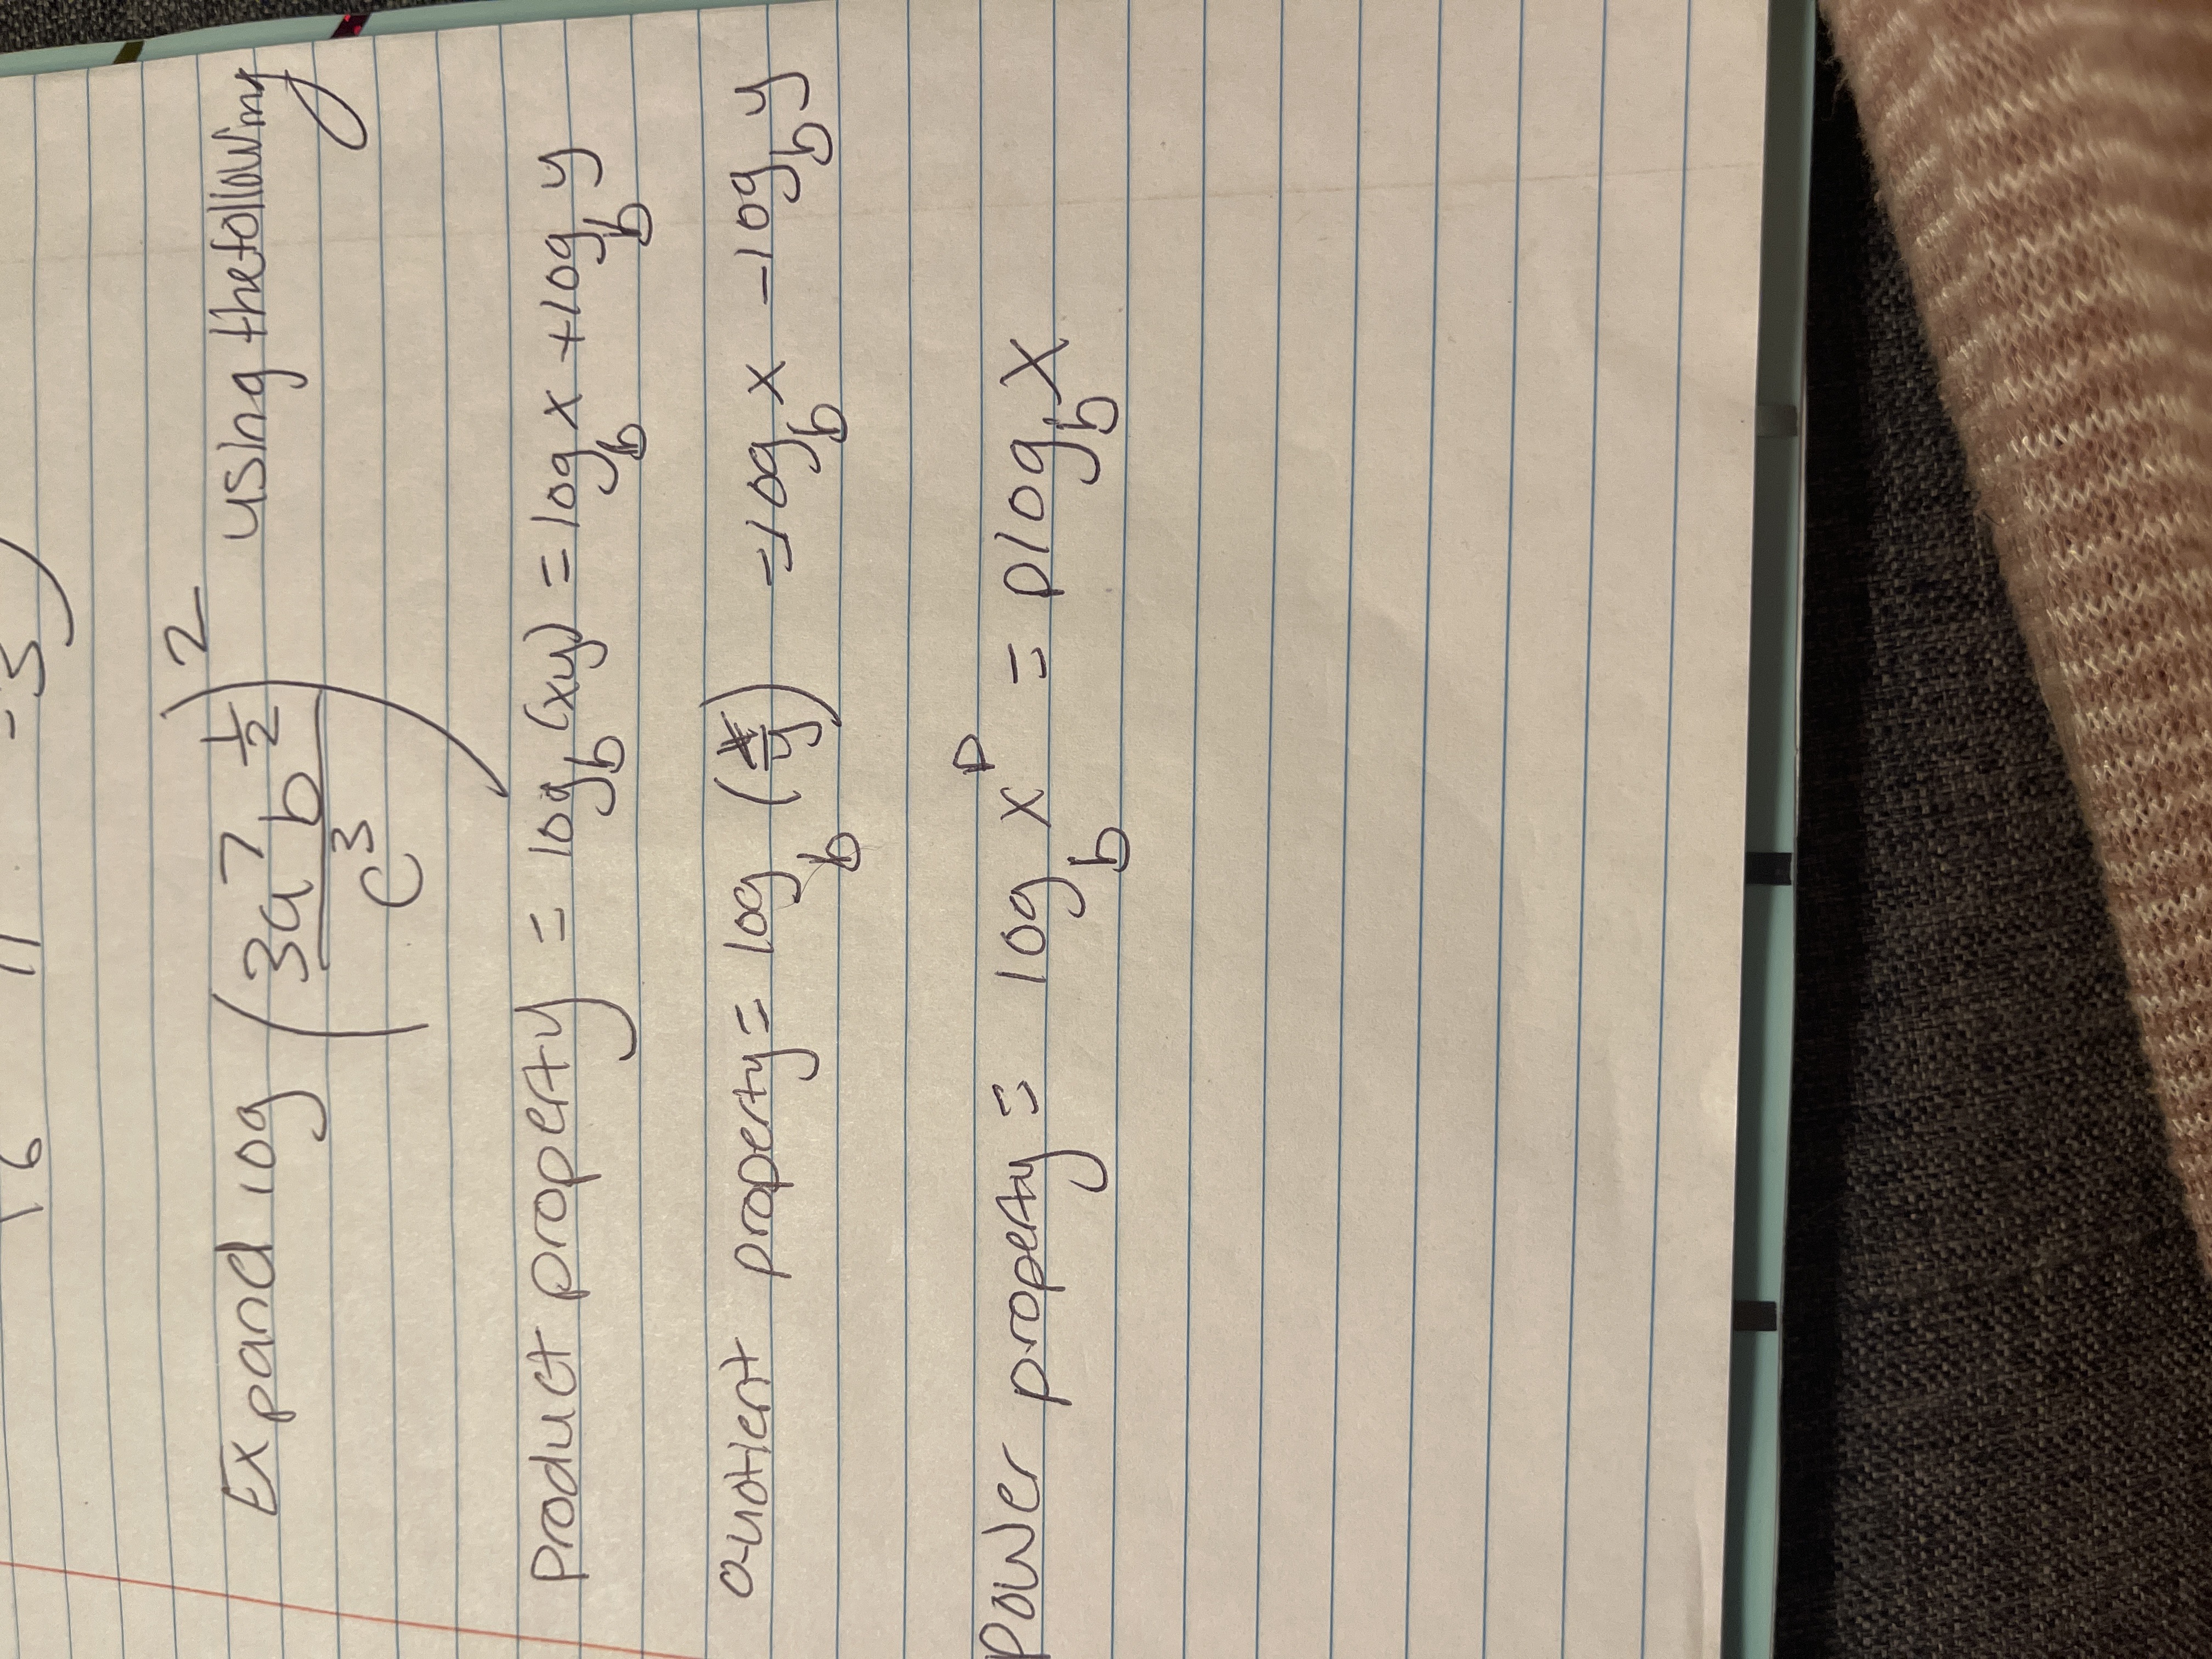 16 11 -3)
Expand log (3a⁷b^½ / c³)² using the following
product property = log_b (xy) = log_b x + log_b y
quotient property = log_b (x/y) = log_b x - log_b y
power property = log_b x^p = p log_b x